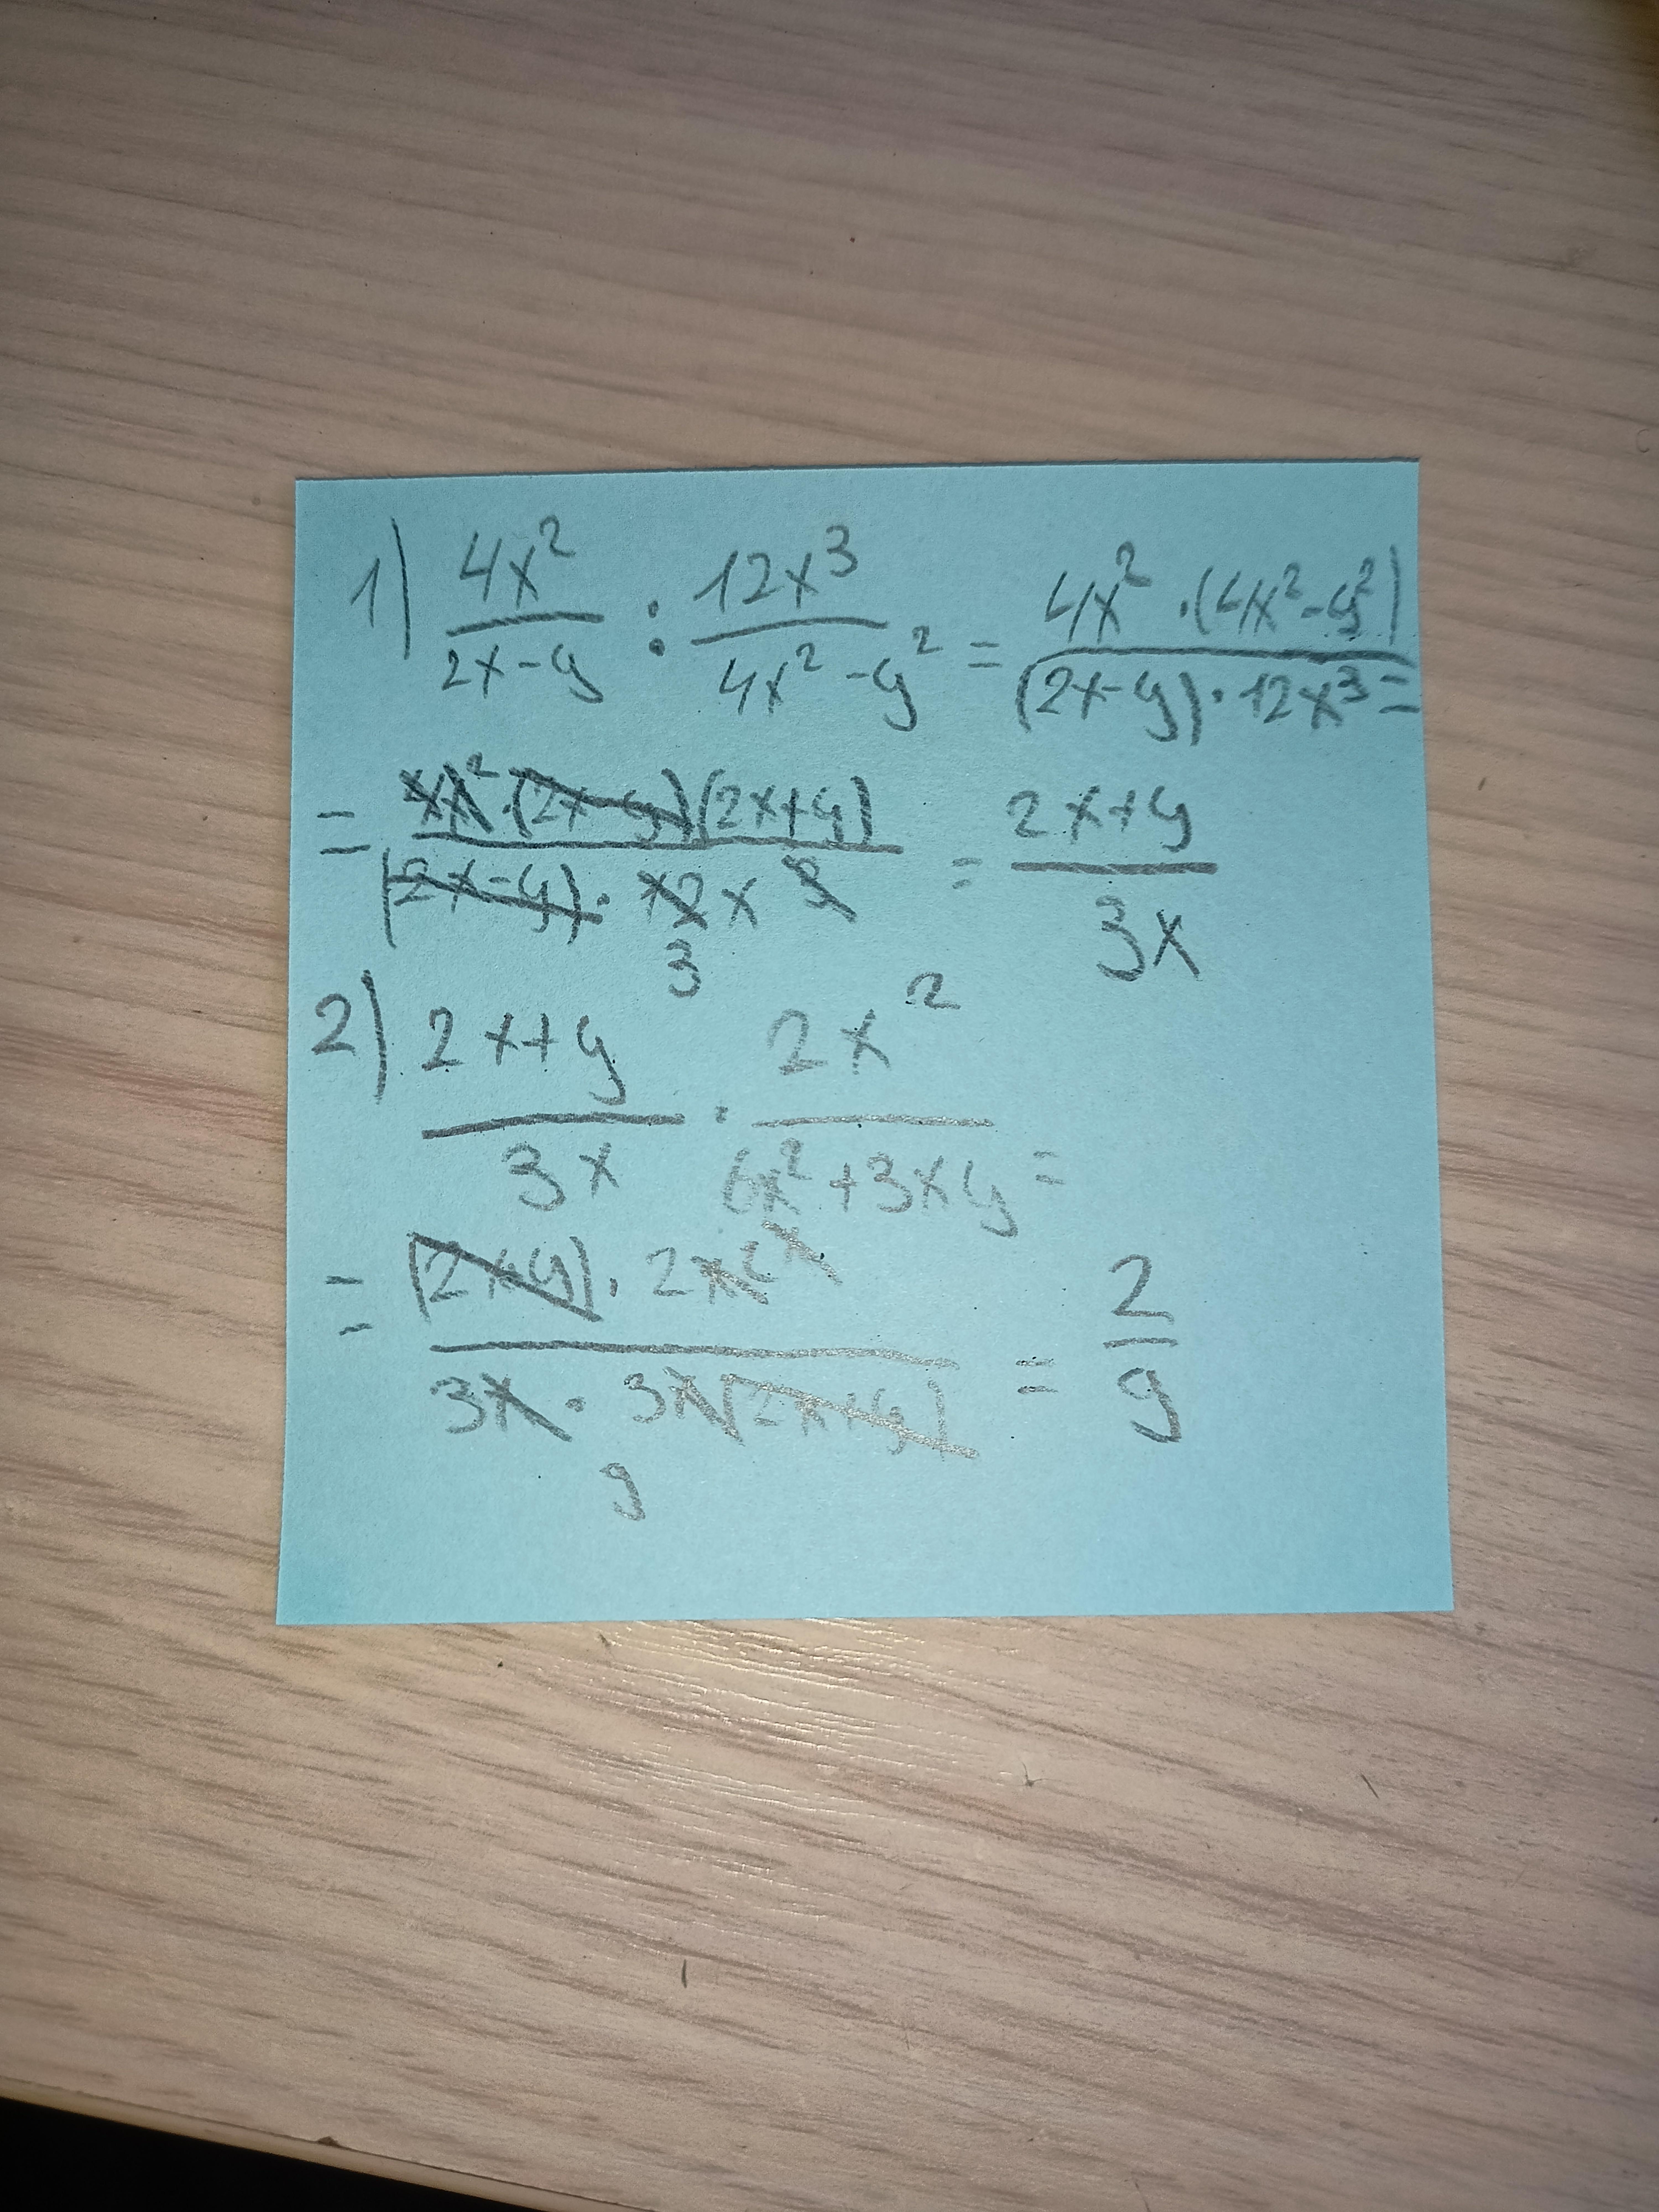 1) 4x²/(2x-y) : 12x³/(4x²-y²) = 4x²·(4x²-y²)/(2x-y)·12x³ =
= 4x²·(2x-y)(2x+y)/(2x-y)·12x³ = (2x+y)/3x
3
2) (2x+y)/3x · 2x²/(6x²+3xy) =
= (2x+y)·2x²/3x·3x(2x+y) = 2/9
9